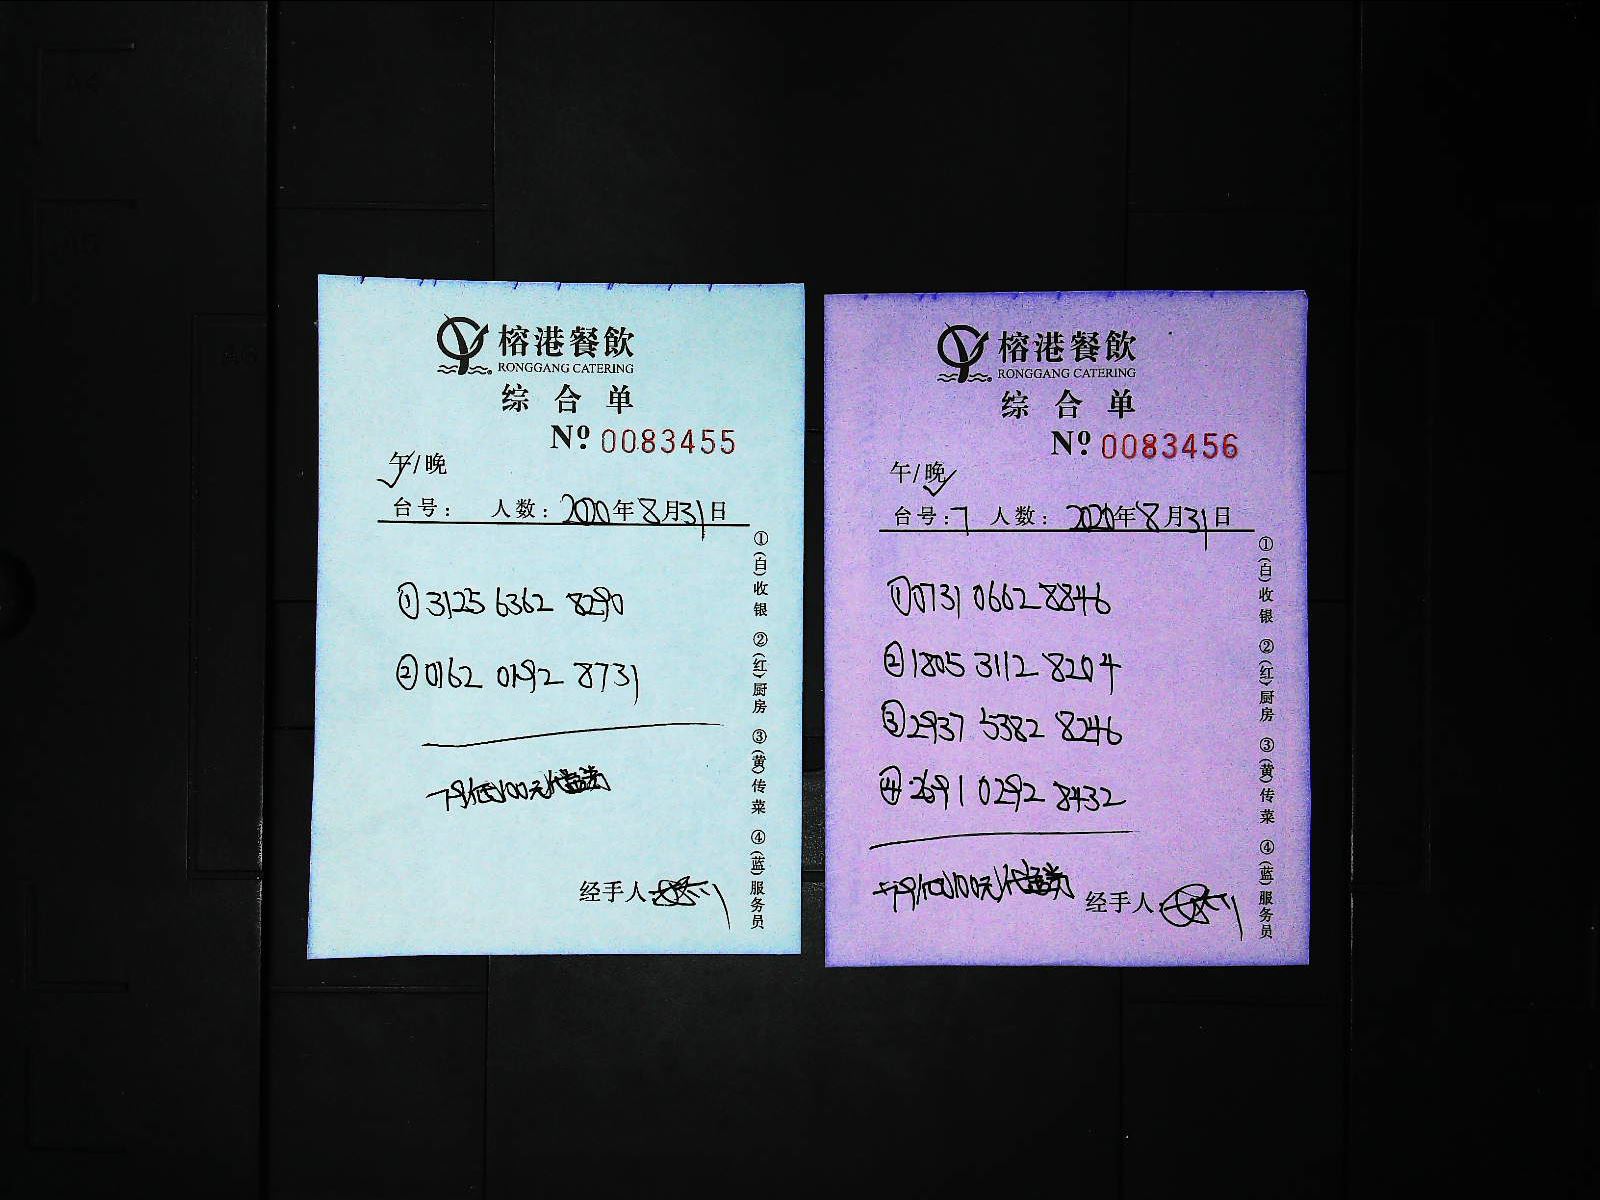 榕港餐飲
RONGGANG CATERING
综合单
Nº 0083455
午/晚
台号： 人数： 2020年8月31日
① 3125 6362 8290
② 0162 0192 8731
79抵100元代金券
经手人
①(白)收银 ②(红)厨房 ③(黄)传菜 ④(蓝)服务员
榕港餐飲
RONGGANG CATERING
综合单
Nº 0083456
午/晚
台号：7 人数： 2020年8月31日
① 0731 0662 8846
② 1805 3112 8204
③ 2937 5382 8246
④ 2691 0292 8432
79抵100元代金券
经手人
①(白)收银 ②(红)厨房 ③(黄)传菜 ④(蓝)服务员